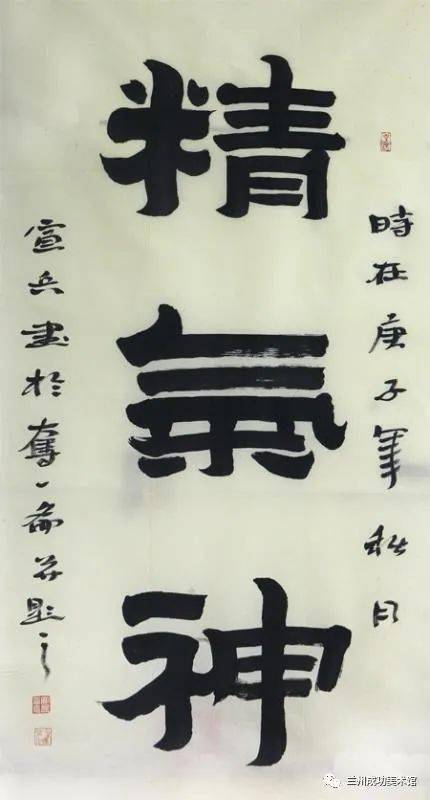 精氣神
時在庚子年秋月
宣兵書於奮一斋并題之
兰州成功美术馆